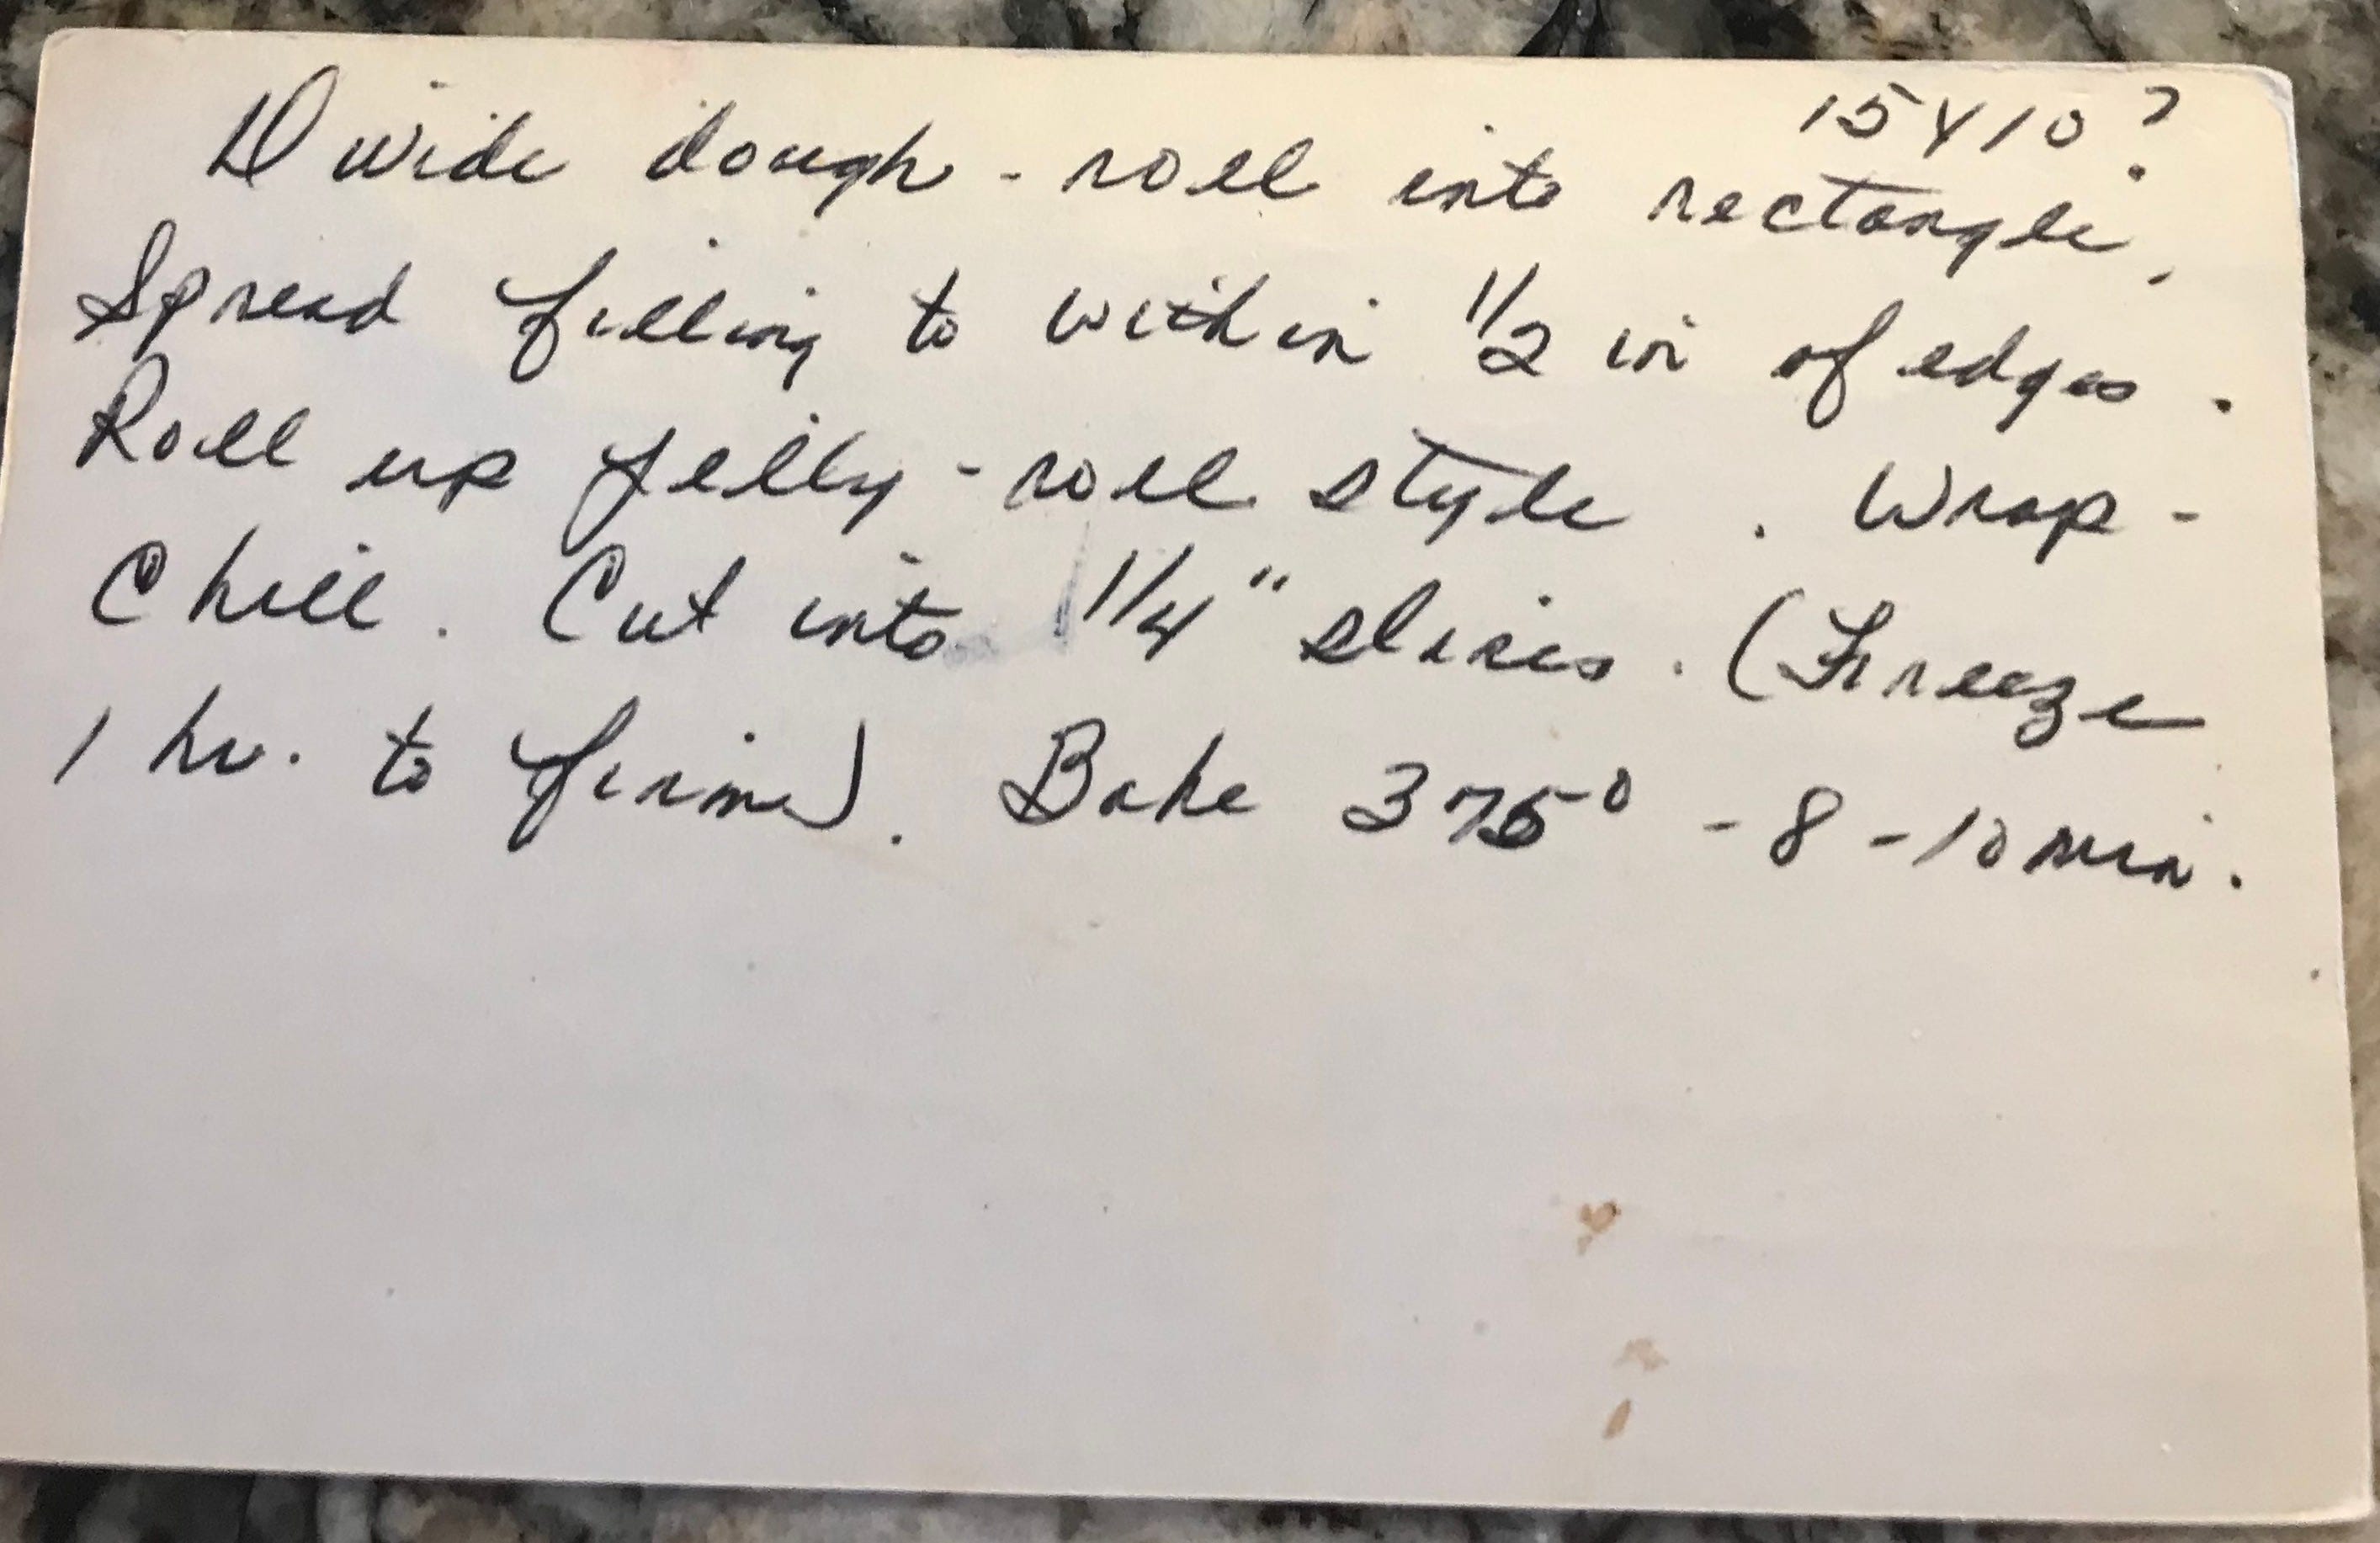 15 X 10 ?
Divide dough - roll into rectangle,
Spread filling to within 1/2 in of edges.
Roll up jelly-roll style. Wrap -
Chill. Cut into 1/4" slices. (Freeze
1 hr. to firm). Bake 375° - 8 - 10 min.